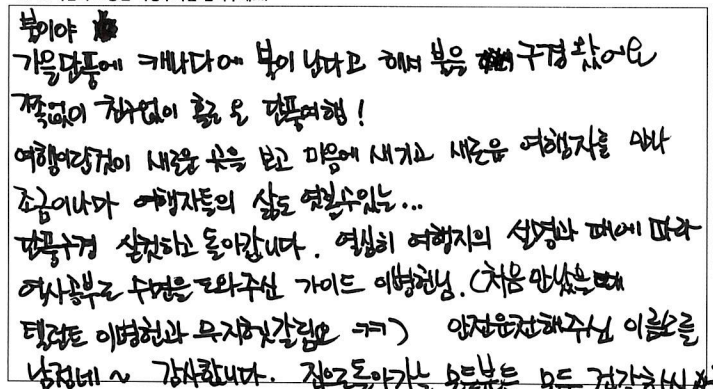 불이야
가을단풍에 캐나다에 불이 났다고 해서 불을 구경 왔어요
짝없이 친구없이 홀로 온 단풍여행!
여행이란것이 새로운 곳을 보고 마음에 새기고 새로운 여행자를 만나
조금이나마 여행자들의 삶도 엿볼수있는...
단풍구경 실컷하고 돌아갑니다. 열심히 여행지의 설명과 때에 따라
역사공부로 수면을 도와주신 가이드 이병헌님. (처음 만났을때
탤런트 이병헌과 무지헷갈림요 ㅋㅋ) 안전운전해주신 이름모를
남정네 ~ 감사합니다. 집으로돌아가는 모든분들 모두 건강하시